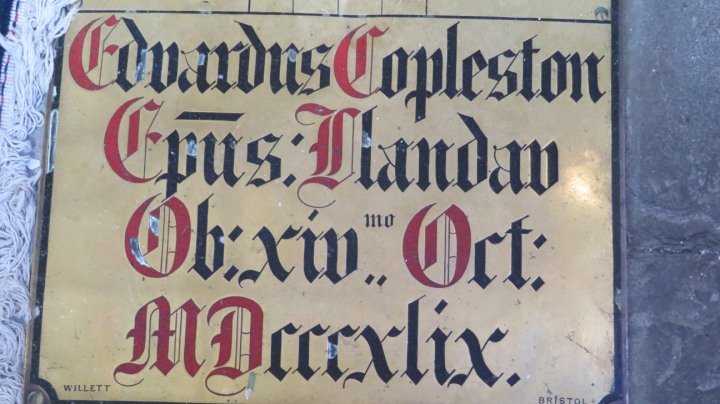 Edvardus Copleston
Ep̄us: Llandav
Ob: xiv mo .. Oct:
MDcccxlix.
WILLETT
BRISTOL